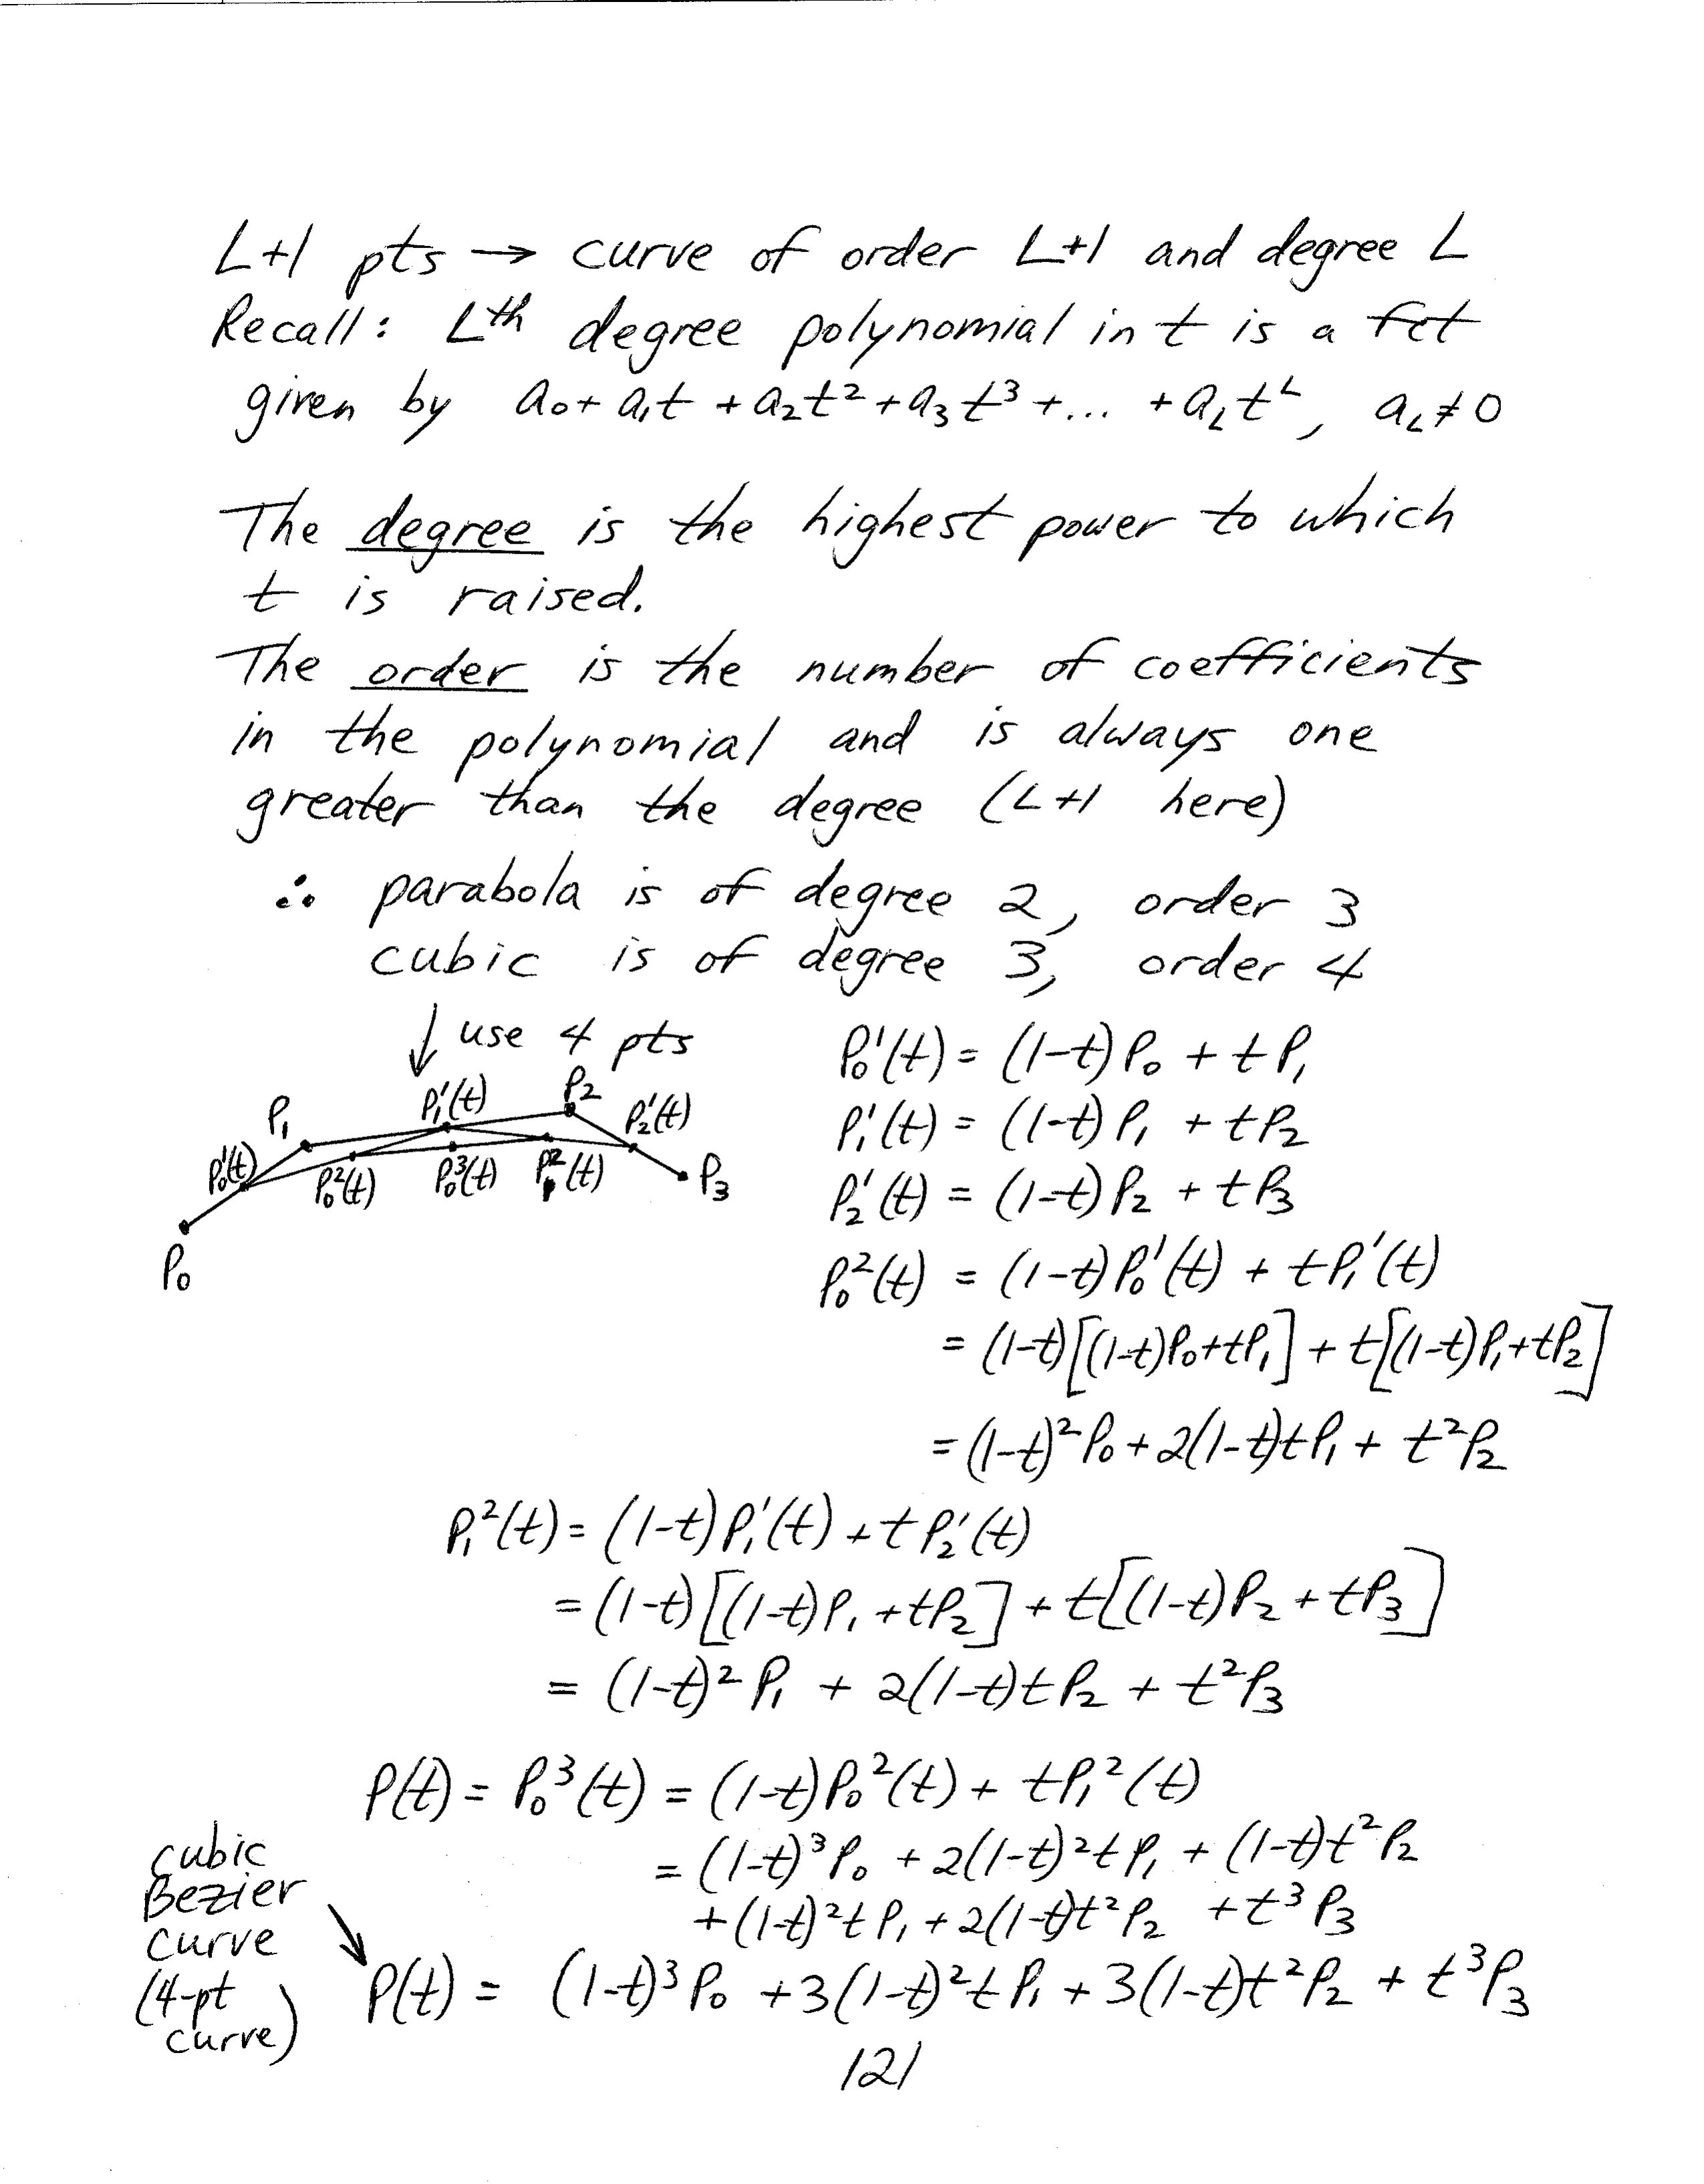 L+1 pts → curve of order L+1 and degree L
Recall: Lᵗʰ degree polynomial in t is a fct
given by a₀+ a₁t + a₂t² + a₃t³ + ... + a_L t^L, a_L ≠ 0
The degree is the highest power to which
t is raised.
The order is the number of coefficients
in the polynomial and is always one
greater than the degree (L+1 here)
∴ parabola is of degree 2, order 3
cubic is of degree 3, order 4
↓ use 4 pts
P₀
P₀¹(t)
P₁
P₁¹(t)
P₂
P₂¹(t)
P₃
P₀²(t)
P₀³(t)
P₁²(t)
P₀¹(t) = (1-t)P₀ + tP₁
P₁¹(t) = (1-t)P₁ + tP₂
P₂¹(t) = (1-t)P₂ + tP₃
P₀²(t) = (1-t)P₀¹(t) + tP₁¹(t)
= (1-t)[(1-t)P₀+tP₁] + t[(1-t)P₁+tP₂]
= (1-t)²P₀ + 2(1-t)tP₁ + t²P₂
P₁²(t) = (1-t)P₁¹(t) + tP₂¹(t)
= (1-t)[(1-t)P₁ + tP₂] + t[(1-t)P₂ + tP₃]
= (1-t)²P₁ + 2(1-t)tP₂ + t²P₃
P(t) = P₀³(t) = (1-t)P₀²(t) + tP₁²(t)
= (1-t)³P₀ + 2(1-t)²tP₁ + (1-t)t²P₂
+ (1-t)²tP₁ + 2(1-t)t²P₂ + t³P₃
cubic
Bezier
curve
(4-pt
curve)
P(t) = (1-t)³P₀ + 3(1-t)²tP₁ + 3(1-t)t²P₂ + t³P₃
121